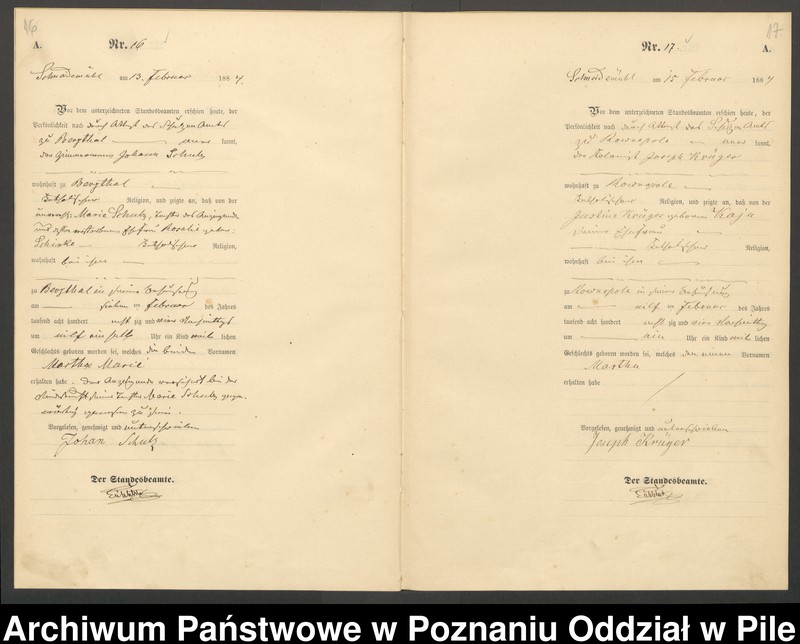 16
A.
Nr. 16
Schneidemühl am 13. Februar 1884.
Vor dem unterzeichneten Standesbeamten erschien heute, der
Persönlichkeit nach durch Attest des Schulzen Amts
zu Bergthal — kannt,
der Zimmermann Johann Schulz
wohnhaft zu Bergthal
katholischer Religion, und zeigte an, daß von der
unverehel. Marie Schulz, Tochter des Anzeigenden
und dessen verstorbenen Ehefrau Rosalie gebor.
Schinke — katholischer Religion,
wohnhaft bei ihm
zu Bergthal in seiner Behausung
am — sieben ten Februar des Jahres
tausend acht hundert acht zig und vier Nachmittags
um elf ein halb Uhr ein Kind weib lichen
Geschlechts geboren worden sei, welches die beiden Vornamen
Martha Marie
erhalten habe. Der Anzeigende versichert bei der
Niederkunft seiner Tochter Marie Schulz gegen-
wärtig gewesen zu sein.
Vorgelesen, genehmigt und unterschrieben
Johan Schulz
Der Standesbeamte.
17
Nr. 17.
A.
Schneidemühl am 15 Februar 1884
Vor dem unterzeichneten Standesbeamten erschien heute, der
Persönlichkeit nach durch Attest des Schulzen Amts
zu Kownopole — kannt,
der Kolonist Joseph Krüger
wohnhaft zu Kownopole
katholischer Religion, und zeigte an, daß von der
Justine Krüger geborenen Kaju
seiner Ehefrau
katholischer Religion,
wohnhaft bei ihm
zu Kownopole in seiner Behausung
am — elf ten Februar des Jahres
tausend acht hundert acht zig und vier Nachmittags
um — ein Uhr ein Kind weib lichen
Geschlechts geboren worden sei, welches den Vornamen
Martha
erhalten habe
Vorgelesen, genehmigt und unterschrieben
Joseph Krüger
Der Standesbeamte.
Archiwum Państwowe w Poznaniu Oddział w Pile